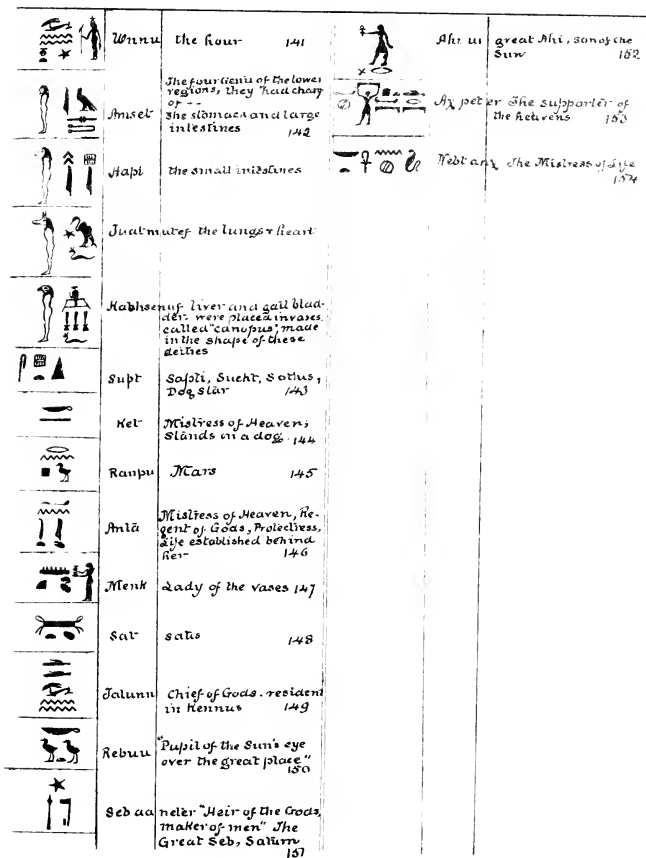 Unnu the hour 141
Amset The four Genii of the lower
regions, they had charg
of --
the stomach and large
intestines
142
Hapi the small intestines
Tuatmutef the lungs & heart
Kabhsenuf liver and gall blad-
der- were placed in vases
called "canopus", made
in the shape of these
deities
Supt Sapti, Sucht, Sothis,
Dog Star 143
Ket Mistress of Heaven;
Stands on a dog. 144
Ranpu Mars 145
Antā Mistress of Heaven, Re-
gent of Gods, Protectress,
Life established behind
her- 146
Menk Lady of the vases 147
Sat satis 148
Tatunn Chief of Gods. resident
in Kennus 149
Rebuu "Pupil of the Sun's eye
over the great place"
150
Seb aa neter "Heir of the Gods,
maker of men" The
Great Seb, Saturn
151
Ahi ui great Ahi, son of the
Sun 152
Ax pet er The supporter of
the heavens 153
Nebt anx The Mistress of Life
154